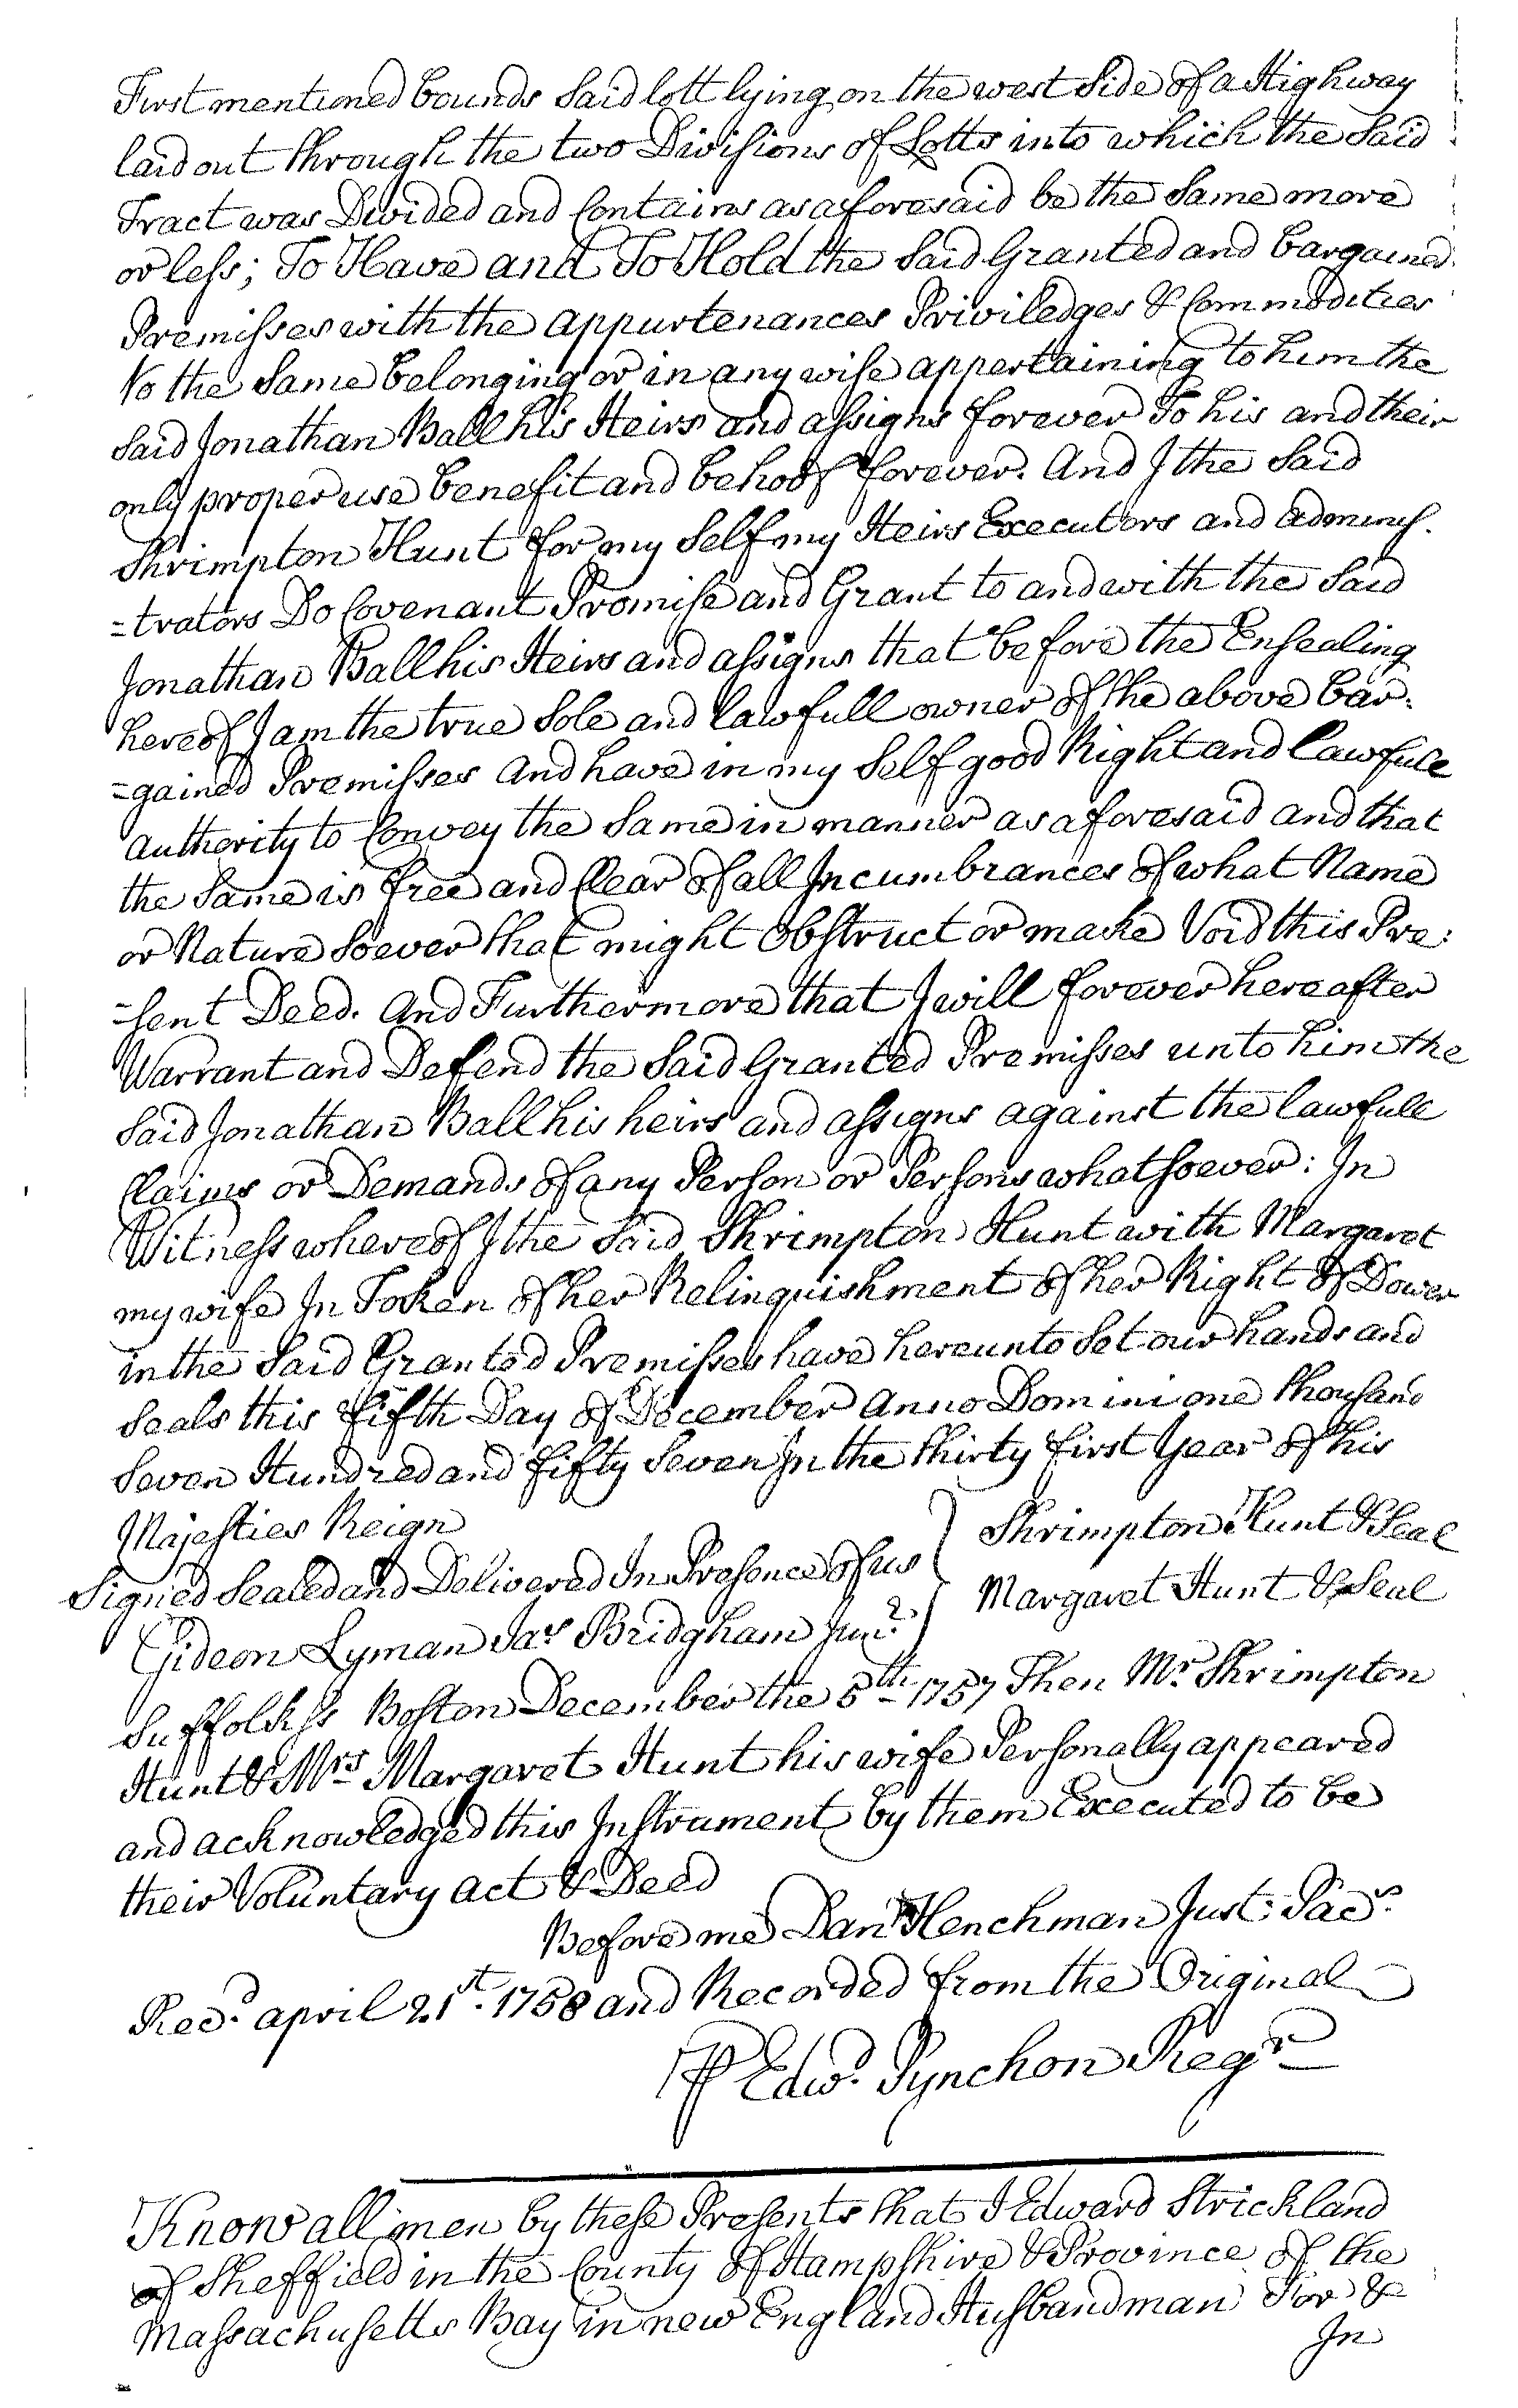 First mentioned bounds Said lott lying on the west Side of a Highway
laid out through the two Divisions of Lotts into which the Said
Tract was Divided and Contains as aforesaid be the Same more
or less; To Have and To Hold the Said Granted and bargained
Premisses with the appurtenances Priviledges & Commodities
to the Same belonging or in any wise appertaining to him the
Said Jonathan Ball his Heirs and assigns forever To his and their
only proper use benefit and behoof forever. And I the Said
Shrimpton Hunt for my Self my Heirs Executors and adminis-
=trators Do Covenant Promise and Grant to and with the Said
Jonathan Ball his Heirs and assigns that before the Ensealing
hereof I am the true Sole and lawfull owner of the above bar-
=gained Premisses And have in my Self good Right and lawfull
authority to Convey the Same in manner as aforesaid and that
the Same is free and Clear of all Incumbrances of what Name
or Nature Soever that might Obstruct or make Void this Pre:
=sent Deed. And Furthermore that I will forever hereafter
Warrant and Defend the Said Granted Premisses unto him the
Said Jonathan Ball his heirs and assigns against the lawfull
Claims or Demands of any Person or Persons whatsoever: In
Witness whereof I the Said Shrimpton Hunt with Margaret
my wife In Token of her Relinquishment of her Right of Dower
in the Said Granted Premisses have hereunto Set our hands and
Seals this fifth Day of December Anno Domini one thousand
Seven Hundred and fifty Seven In the thirty first Year of his
Majesties Reign
Shrimpton Hunt & Seal
Signed Sealed and Delivered In Presence of us
Margaret Hunt & Seal
Gideon Lyman Jas Bridgham Junr.
Suffolk ss Boston December the 5th 1757 Then Mr Shrimpton
Hunt & Mrs Margaret Hunt his wife Personally appeared
and acknowledged this Instrument by them Executed to be
their Voluntary act & Deed
Before me Danl Henchman Just: Pacs.
Recd. april 21st. 1758 and Recorded from the Original
P Edwd. Pynchon Regr
Know all men by these Presents that I Edward Strickland
of Sheffield in the County of Hampshire & Province of the
Massachusetts Bay in new England Husbandman For &
In